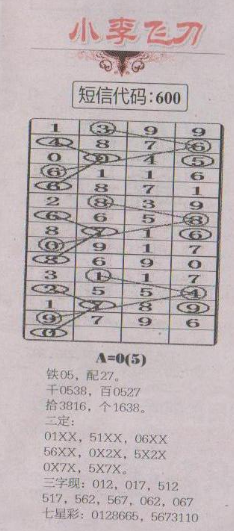 小李飞刀
短信代码:600
1 3 9 9
4 8 7 6
0 9 4 5
6 1 1 6
6 8 7 1
2 8 3 9
6 6 5 8
8 7 1 6
0 9 1 7
8 6 9 0
3 1 1 7
2 5 5 4
1 7 8 9
9 7 9 6
0
A=0(5)
铁05，配27。
千0538，百0527
拾3816，个1638。
二定：
01XX，51XX，06XX
56XX，0X2X，5X2X
0X7X，5X7X。
三字现：012，017，512
517，562，567，062，067
七星彩：0128665，5673110